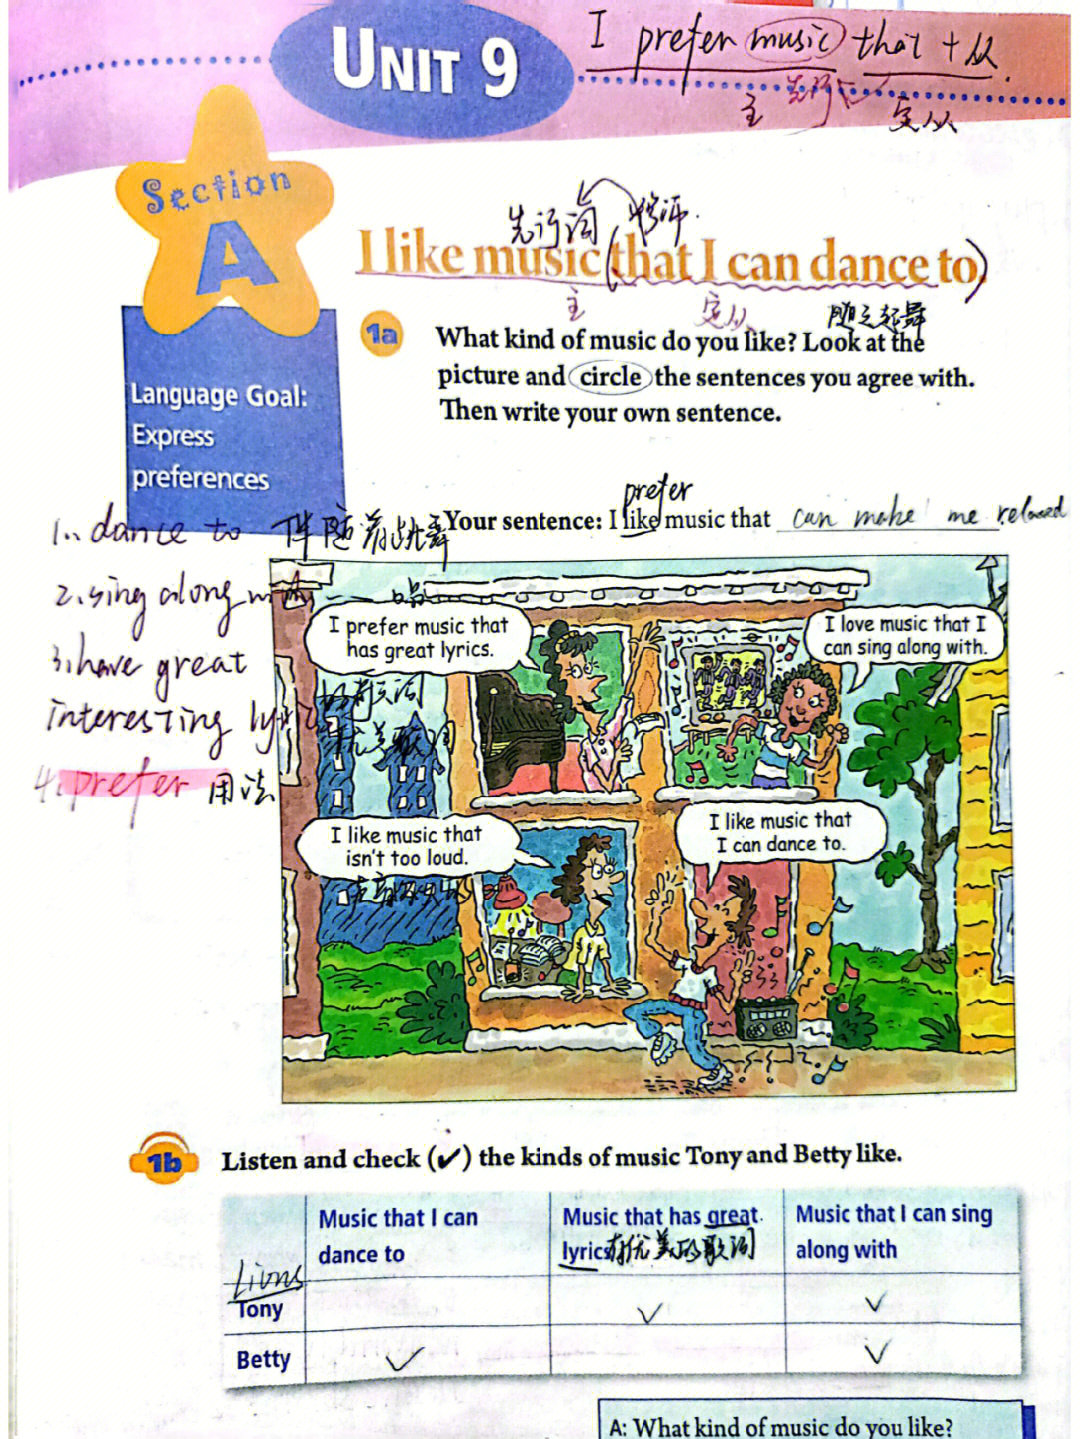 UNIT 9
I prefer music that + 从.
主 先行词 定从
Section
A
先行词 修饰
I like music (that I can dance to)
主 定从 随之起舞
Language Goal:
Express
preferences
1a
What kind of music do you like? Look at the
picture and circle the sentences you agree with.
Then write your own sentence.
prefer
Your sentence: I like music that can make me relaxed
1. dance to 伴随着跳舞
2. sing along with
3. have great
interesting lyrics
4. prefer 用法
I prefer music that
has great lyrics.
歌词
有优美歌词
I love music that I
can sing along with.
I like music that
isn't too loud.
I like music that
I can dance to.
1b
Listen and check (✓) the kinds of music Tony and Betty like.
Music that I can
dance to
Music that has great
lyrics 有优美的歌词
Music that I can sing
along with
Tony ✓ ✓
Betty ✓ ✓
A: What kind of music do you like?